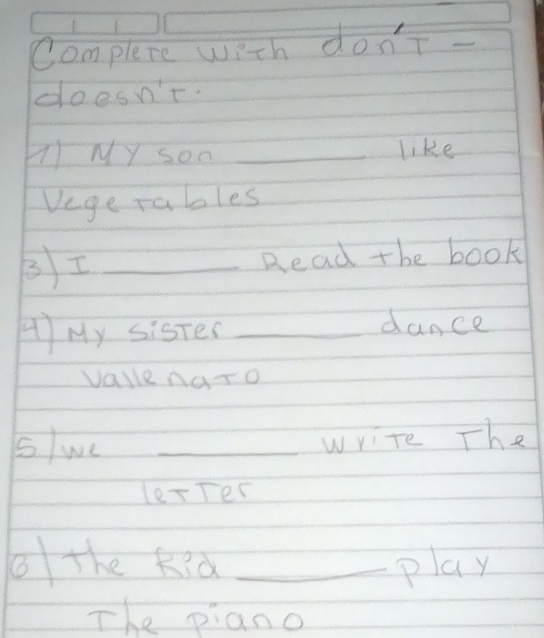 Complete with don't -
doesn't.
1) My son ______ like
Vegetables
3) I ______ Read the book
4) My sister ______ dance
vallenato
5) we ______ write The
letter
6) the kid ______ play
The piano